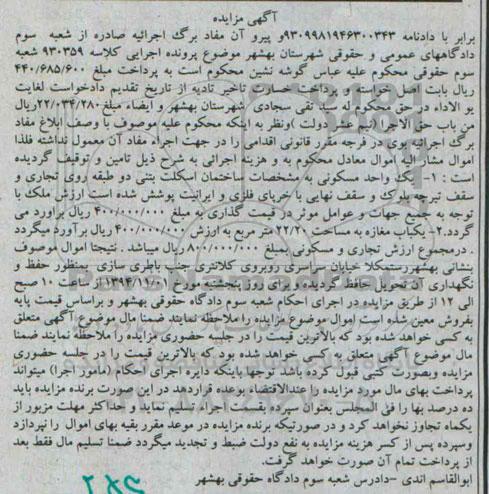 آگهی مزایده
برابر با دادنامه ۹۳۰۹۹۸۱۹۴۶۳۰۰۳۴۳و پیرو آن مفاد برگ اجرائیه صادره از شعبه سوم
دادگاههای عمومی و حقوقی شهرستان بهشهر موضوع پرونده اجرایی کلاسه ۹۳۰۳۵۹ شعبه
سوم حقوقی محکوم علیه عباس گوشه نشین محکوم است به پرداخت مبلغ ۴۴۰/۶۸۵/۶۰۰
ریال بابت اصل خواسته و پرداخت خسارت تاخیر تادیه از تاریخ تقدیم دادخواست لغایت
یو الاداء در حق محکوم له سید تقی سجادی شهرستان بهشهر و ایضاء مبلغ۲۲/۰۳۴/۲۸۰ریال
من باب حق الاجرا (نیم عشر دولت )ونظر به اینکه محکوم علیه موصوف با وصف ابلاغ مفاد
برگ اجرائیه بوی در فرجه مقرر قانونی اقدامی را در جهت اجراء مفاد آن معمول نداشته فلذا
اموال مشار الیه اموال معادل محکوم به و هزینه اجرائی به شرح ذیل تامین و توقیف گردیده
است : ۱- یک واحد مسکونی به مشخصات ساختمان اسکلت بتنی دو طبقه روی تجاری و
سقف تیرچه بلوک و سقف نهایی با خرپای فلزی و ایرانیت پوشش شده است ارزش ملک با
توجه به جمیع جهات و عوامل موثر در قیمت گذاری به مبلغ ۴۰۰/۰۰۰/۰۰۰ ریال براورد می
گردد.۲- یکباب مغازه به مساحت ۲۲/۲۰ متر مربع به ارزش ۴۰۰/۰۰۰/۰۰۰ ریال برآورد میگردد
. درمجموع ارزش تجاری و مسکونی بمبلغ ۸۰۰/۰۰۰/۰۰۰ ریال میباشد . نتیجتا اموال موصوف
بنشانی بهشهررستمکلا خیابان سراسری روبروی کلانتری جنب باطری سازی بمنظور حفظ و
نگهداری آن تحویل حافظ گردیده و برای روز پنجشنبه مورخ ۱۳۹۴/۱۱/۰۱ از ساعت ۱۰ صبح
الی ۱۲ از طریق مزایده در اجرای احکام شعبه سوم دادگاه حقوقی بهشهر و براساس قیمت پایه
بفروش معین شده است اموال موضوع مزایده را ملاحظه نمایند ضمنا مال موضوع آگهی متعلق
به کسی خواهد شده بود که بالاترین قیمت را در جلسه حضوری مزایده را ملاحظه نمایند ضمنا
مال موضوع آگهی متعلق به کسی خواهد شده بود که بالاترین قیمت را در جلسه حضوری
مزایده وبصورت کتبی قبول کرده باشد توجها باینکه دایره اجرای احکام (مامور اجرا) میتواند
پرداخت بهای مال مورد مزایده را عندالاقتضاء بوعده قراردهد در این صورت برنده مزایده باید
ده درصد بها را فی المجلس بعنوان سپرده بقسمت اجراء تسلیم نماید و حداکثر مهلت مزبور از
یکماه تجاوز نخواهد کرد و در صورتیکه برنده مزایده در موعد مقرر بقیه بهای اموال را نپردازد
وسپرده پس از کسر هزینه مزایده به نفع دولت ضبط و تجدید میگردد ضمنا تسلیم مال فقط بعد
از پرداخت تمام آن صورت خواهد گرفت.
ابوالقاسم اندی –دادرس شعبه سوم دادگاه حقوقی بهشهر